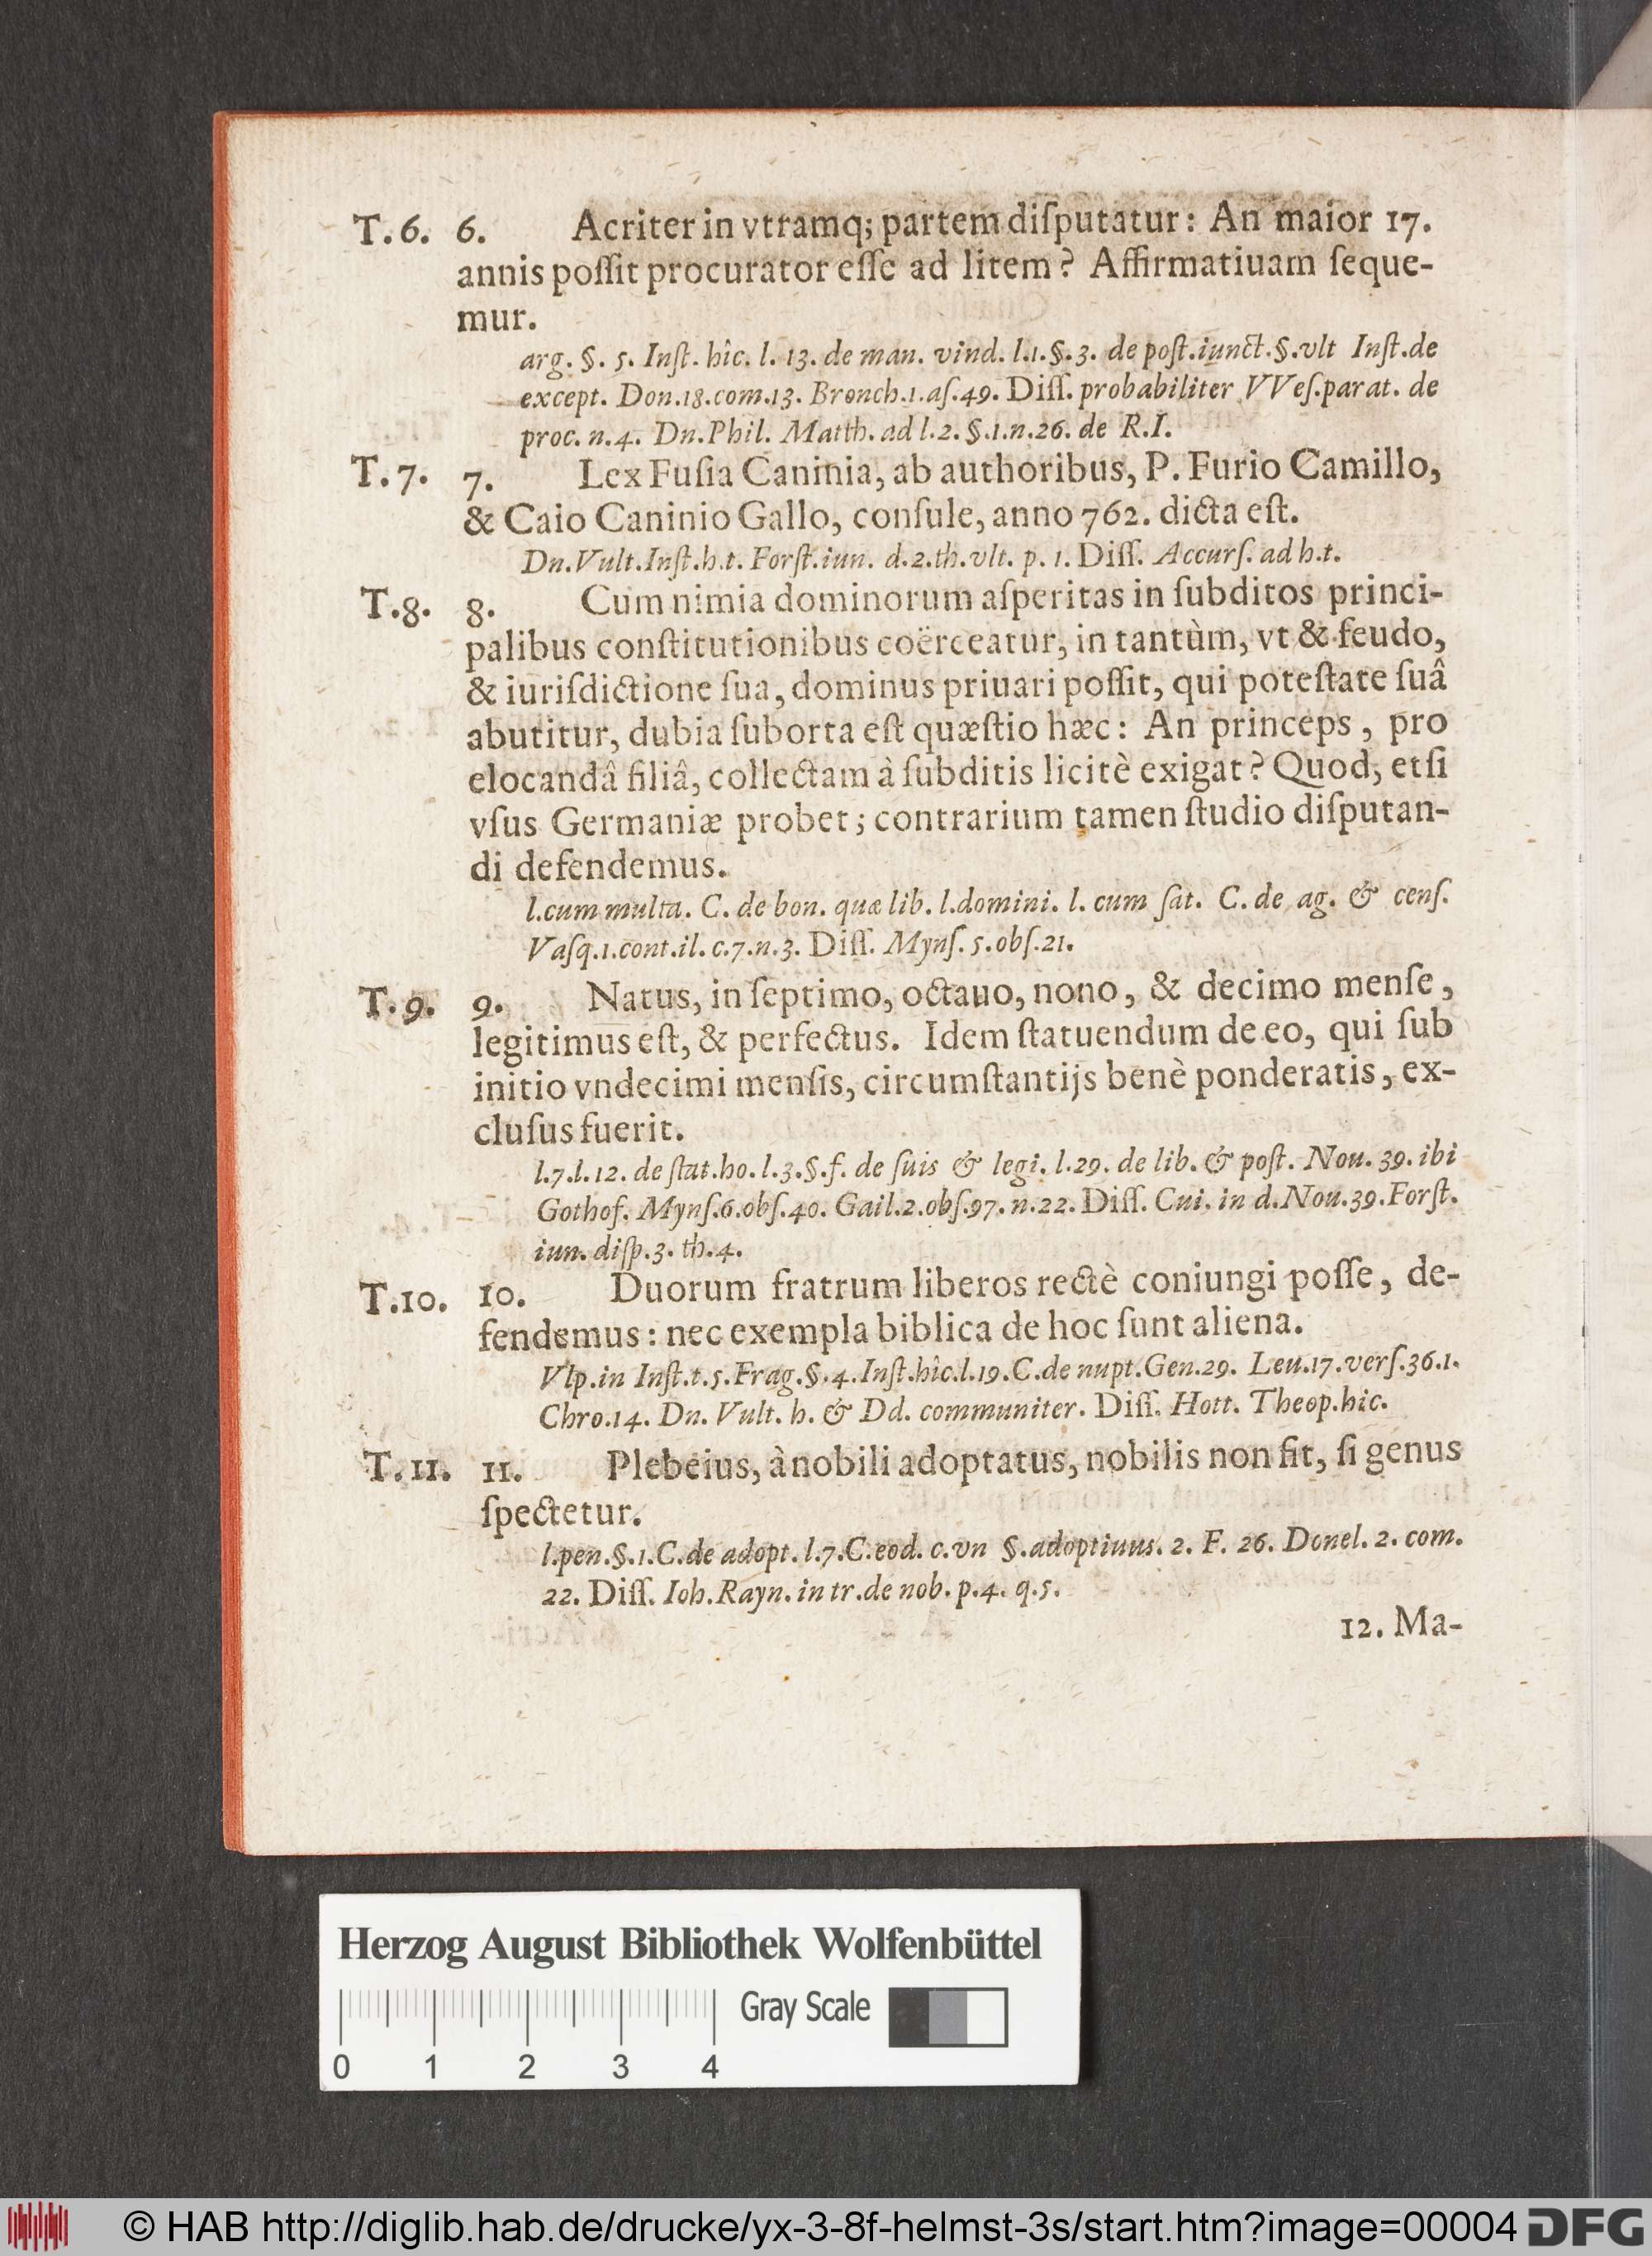 T.6. 6. Acriter in vtramq; partem diſputatur: An maior 17.
annis poſſit procurator eſſe ad litem? Affirmatiuam ſeque-
mur.
arg. §. 5. Inſt. hîc. l. 13. de man. vind. l.1.§.3. de poſt.iunct.§.vlt Inſt.de
except. Don.18.com.13. Bronch.1.aſ.49. Diſſ. probabiliter VVeſ.parat. de
proc. n.4. Dn.Phil. Matth. ad l.2. §.1.n.26. de R.I.
T.7. 7. Lex Fuſia Caninia, ab authoribus, P. Furio Camillo,
& Caio Caninio Gallo, conſule, anno 762. dicta eſt.
Dn.Vult.Inſt.h.t. Forſt.iun. d.2.th.vlt. p. 1. Diſſ. Accurſ. ad h.t.
T.8. 8. Cum nimia dominorum aſperitas in ſubditos princi-
palibus conſtitutionibus coërceatur, in tantùm, vt & feudo,
& iuriſdictione ſua, dominus priuari poſſit, qui poteſtate ſuâ
abutitur, dubia ſuborta eſt quæſtio hæc: An princeps, pro
elocandâ filiâ, collectam à ſubditis licitè exigat? Quod, etſi
vſus Germaniæ probet; contrarium tamen ſtudio diſputan-
di defendemus.
l.cum multa. C. de bon. quæ lib. l.domini. l. cum ſat. C. de ag. & cenſ.
Vaſq.1.cont.il. c.7.n.3. Diſſ. Mynſ. 5.obſ.21.
T.9. 9. Natus, in ſeptimo, octauo, nono, & decimo menſe,
legitimus eſt, & perfectus. Idem ſtatuendum de eo, qui ſub
initio vndecimi menſis, circumſtantijs benè ponderatis, ex-
cluſus fuerit.
l.7.l.12. de ſtat.ho.l.3.§.f. de ſuis & legi. l.29. de lib. & poſt. Nou. 39. ibi
Gothof. Mynſ.6.obſ.40. Gail.2.obſ.97.n.22. Diſſ. Cui. in d.Nou.39.Forſt.
iun. diſp.3. th.4.
T.10. 10. Duorum fratrum liberos rectè coniungi poſſe, de-
fendemus: nec exempla biblica de hoc ſunt aliena.
Vlp.in Inſt.t.5.Frag.§.4.Inſt.hîc.l.19.C.de nupt.Gen.29. Leu.17.verſ.36.1.
Chro.14. Dn. Vult. h. & Dd. communiter. Diſſ. Hott. Theop.hic.
T.11. 11. Plebeius, à nobili adoptatus, nobilis non fit, ſi genus
ſpectetur.
l.pen.§.1.C.de adopt. l.7.C.eod. c.vn §.adoptiuus. 2. F. 26. Donel. 2. com.
22. Diſſ. Ioh.Rayn. in tr.de nob. p.4. q.5.
12. Ma-
Herzog August Bibliothek Wolfenbüttel
Gray Scale
0 1 2 3 4
© HAB http://diglib.hab.de/drucke/yx-3-8f-helmst-3s/start.htm?image=00004 DFG